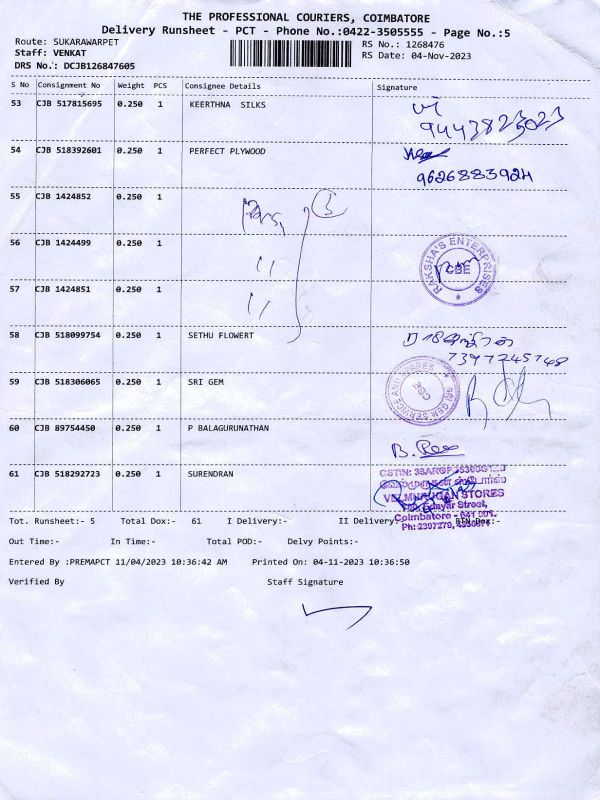 THE PROFESSIONAL COURIERS, COIMBATORE
Delivery Runsheet - PCT - Phone No.:0422-3505555 - Page No.:5
Route: SUKARAWARPET
RS No.: 1268476
Staff: VENKAT
RS Date: 04-Nov-2023
DRS No.: DCJB126847605
S No Consignment No Weight PCS Consignee Details Signature
53 CJB 517815695 0.250 1 KEERTHNA SILKS
9443823023
54 CJB 518392601 0.250 1 PERFECT PLYWOOD
9626883924
55 CJB 1424852 0.250 1
56 CJB 1424499 0.250 1
RAKSHA'S ENTERPRISES
CBE
57 CJB 1424851 0.250 1
58 CJB 518099754 0.250 1 SETHU FLOWERT
7397245748
59 CJB 518306065 0.250 1 SRI GEM
SRI GEM SERVICE AND SPARES
60 CJB 89754450 0.250 1 P BALAGURUNATHAN
61 CJB 518292723 0.250 1 SURENDRAN
STORES
Street,
Coimbatore - 641 001.
Tot. Runsheet:- 5 Total Dox:- 61 I Delivery:- II Delivery
Out Time:- In Time:- Total POD:- Delvy Points:-
Entered By :PREMAPCT 11/04/2023 10:36:42 AM Printed On: 04-11-2023 10:36:50
Verified By Staff Signature